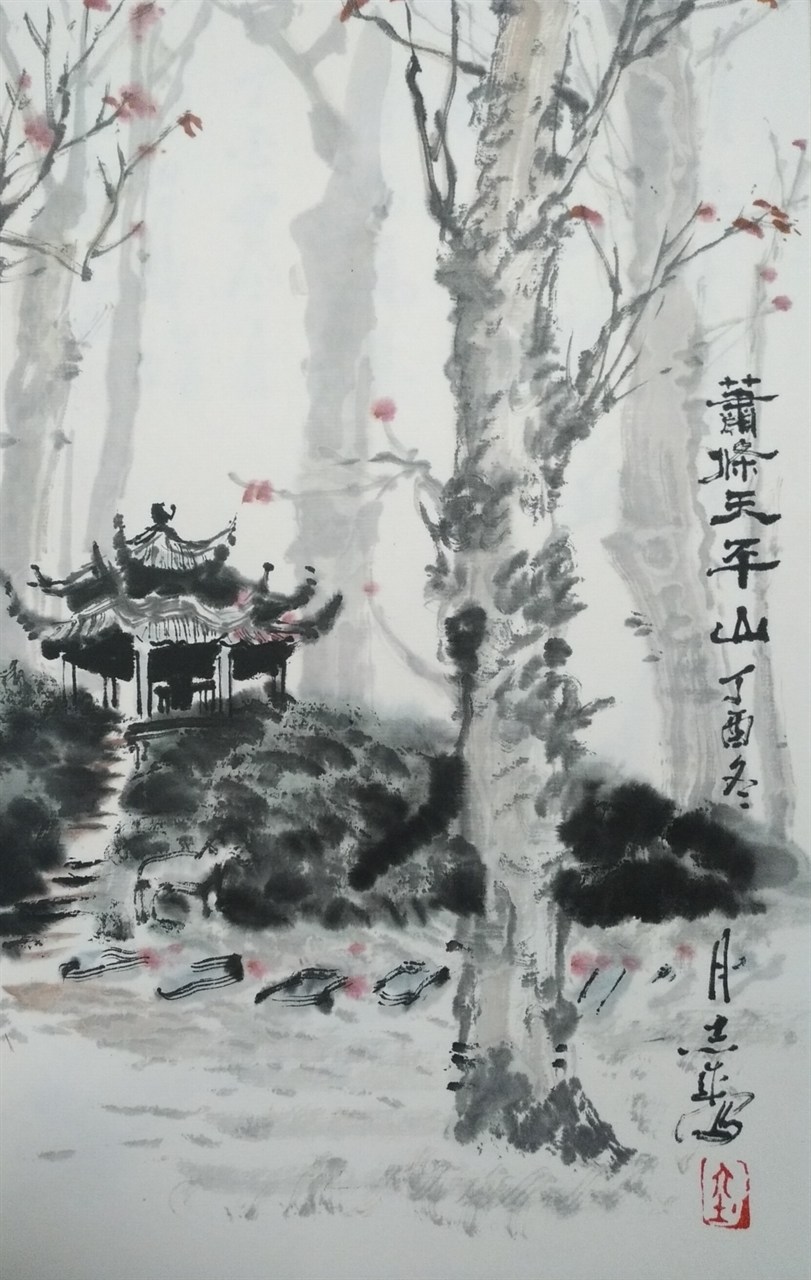 蕭條天平山丁酉冬
月志